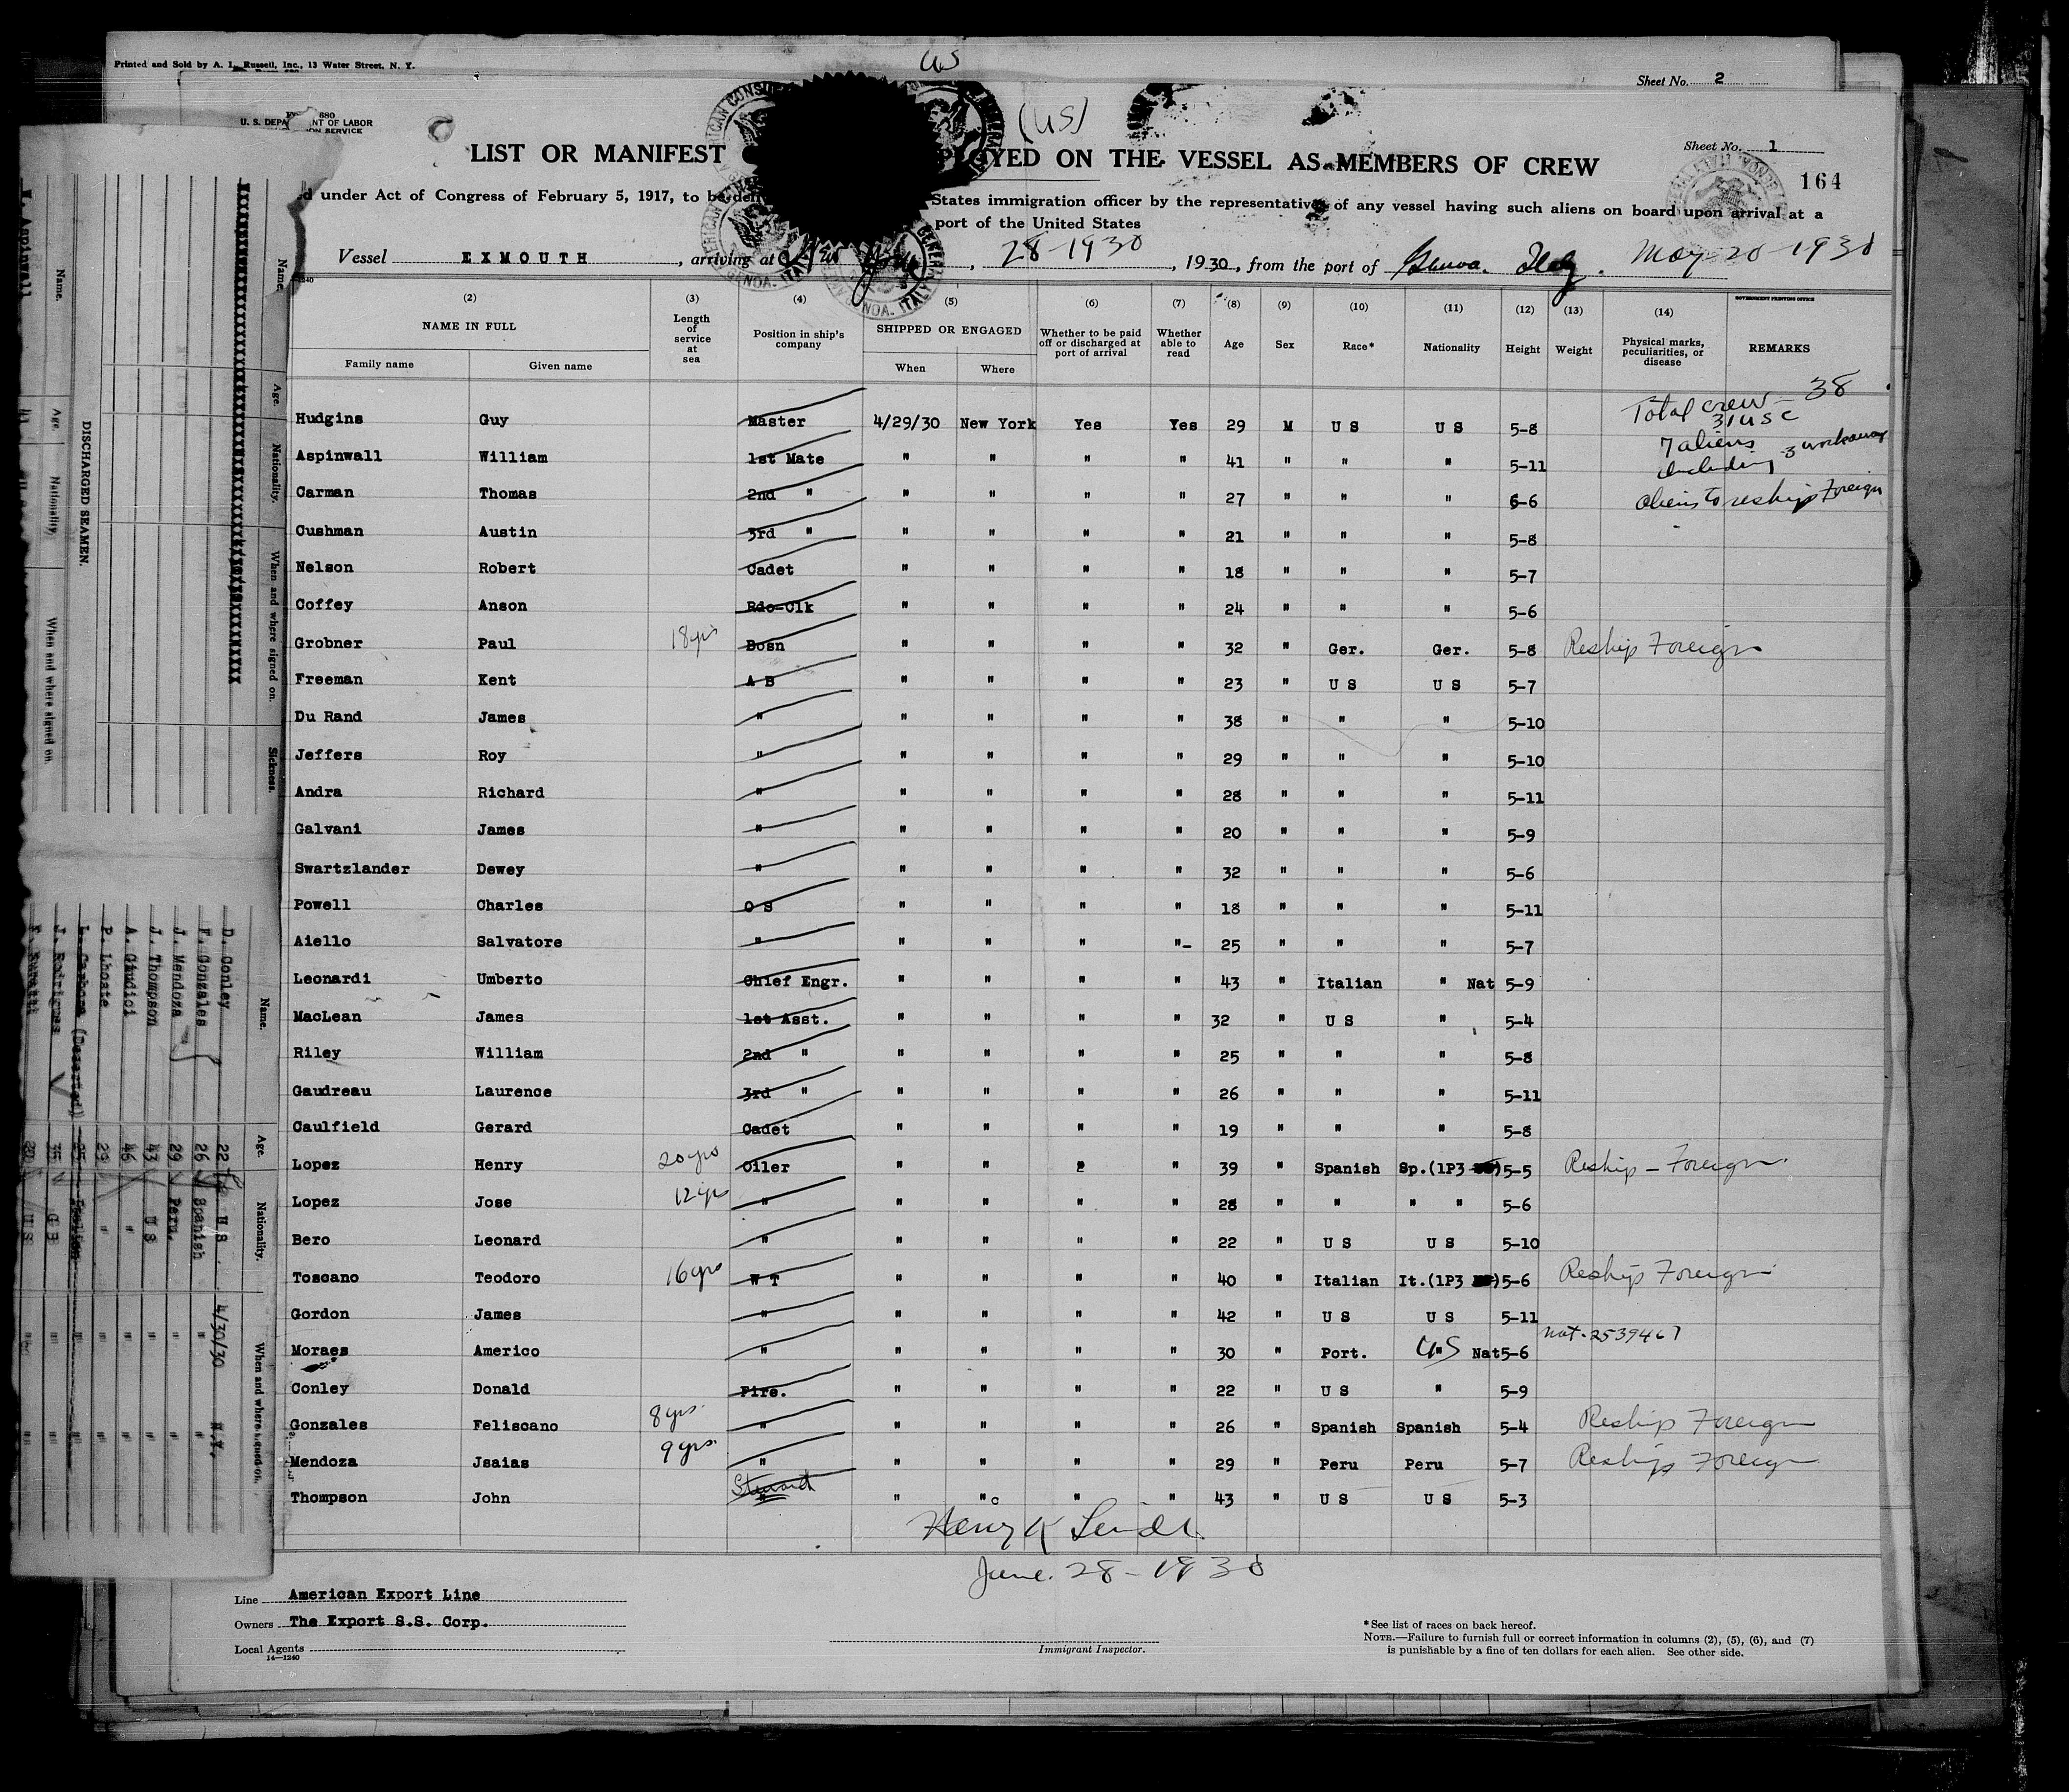 Printed and Sold by A. L. Russell, Inc., 13 Water Street, N. Y.
US
Sheet No. 2
680
U. S. DEPA NT OF LABOR
ON SERVICE
(US)
LIST OR MANIFEST PLOYED ON THE VESSEL AS MEMBERS OF CREW
Sheet No. 1
164
d under Act of Congress of February 5, 1917, to be del States immigration officer by the representative of any vessel having such aliens on board upon arrival at a
port of the United States
Vessel EXMOUTH, arriving at , 28-1930, 1930, from the port of Genoa. Italy. May-20-1930
(2) (3) (4) (5) (6) (7) (8) (9) (10) (11) (12) (13) (14)
NAME IN FULL Length of service at sea Position in ship's company SHIPPED OR ENGAGED Whether to be paid off or discharged at port of arrival Whether able to read Age Sex Race* Nationality Height Weight Physical marks, peculiarities, or disease REMARKS
GOVERNMENT PRINTING OFFICE
Family name Given name When Where
Total crew - 38
31 USC
7 aliens
including 3 workaways
aliens to reship Foreign
Hudgins Guy Master 4/29/30 New York Yes Yes 29 M U S U S 5-8
Aspinwall William 1st Mate " " " " 41 " " " 5-11
Carman Thomas 2nd " " " " " 27 " " " 6-6
Cushman Austin 3rd " " " " " 21 " " " 5-8
Nelson Robert Cadet " " " " 18 " " " 5-7
Coffey Anson Rdo-Clk " " " " 24 " " " 5-6
Grobner Paul 18yrs Bosn " " " " 32 " Ger. Ger. 5-8 Reship Foreign
Freeman Kent A B " " " " 23 " U S U S 5-7
Du Rand James " " " " " 38 " " " 5-10
Jeffers Roy " " " " " 29 " " " 5-10
Andra Richard " " " " " 28 " " " 5-11
Galvani James " " " " " 20 " " " 5-9
Swartzlander Dewey " " " " " 32 " " " 5-6
Powell Charles O S " " " " 18 " " " 5-11
Aiello Salvatore " " " " "- 25 " " " 5-7
Leonardi Umberto Chief Engr. " " " " 43 " Italian " Nat 5-9
MacLean James 1st Asst. " " " " 32 " U S " 5-4
Riley William 2nd " " " " " 25 " " " 5-8
Gaudreau Laurence 3rd " " " " " 26 " " " 5-11
Caulfield Gerard Cadet " " " " 19 " " " 5-8
Lopez Henry 20yrs Oiler " " " " 39 " Spanish Sp.(1P3 ) 5-5 Reship - Foreign
Lopez Jose 12yrs " " " " " 28 " " " " 5-6
Bero Leonard " " " " " 22 " U S U S 5-10
Toscano Teodoro 16yrs W T " " " " 40 " Italian It.(1P3 ) 5-6 Reship Foreign
Gordon James " " " " " 42 " U S U S 5-11
Moraes Americo " " " " " 30 " Port. US Nat 5-6 nat. 2539467
Conley Donald Fire. " " " " 22 " U S " 5-9
Gonzales Feliscano 8yrs. " " " " " 26 " Spanish Spanish 5-4 Reship Foreign
Mendoza Jsaias 9yrs. " " " " " 29 " Peru Peru 5-7 Reship Foreign
Thompson John Steward " " " " 43 " U S U S 5-3
June 28-1930
Line American Export Line
Owners The Export S.S. Corp.
Local Agents
14-1240
Immigrant Inspector.
*See list of races on back hereof.
NOTE.—Failure to furnish full or correct information in columns (2), (5), (6), and (7)
is punishable by a fine of ten dollars for each alien. See other side.
DISCHARGED SEAMEN.
Name. Age. Nationality. When and where signed on. Sickness.
Name. Age. Nationality. When and where signed on.
D. Conley 22 U S 4/30/30 N.Y.
F. Gonzales 26 Spanish " "
J. Mendoza 29 Peru. " "
J. Thompson 43 U S " "
A. Giudici 46 " " "
P. Lhoste 29 " " "
(Deserted) Italian " "
J. Rodrigues " "